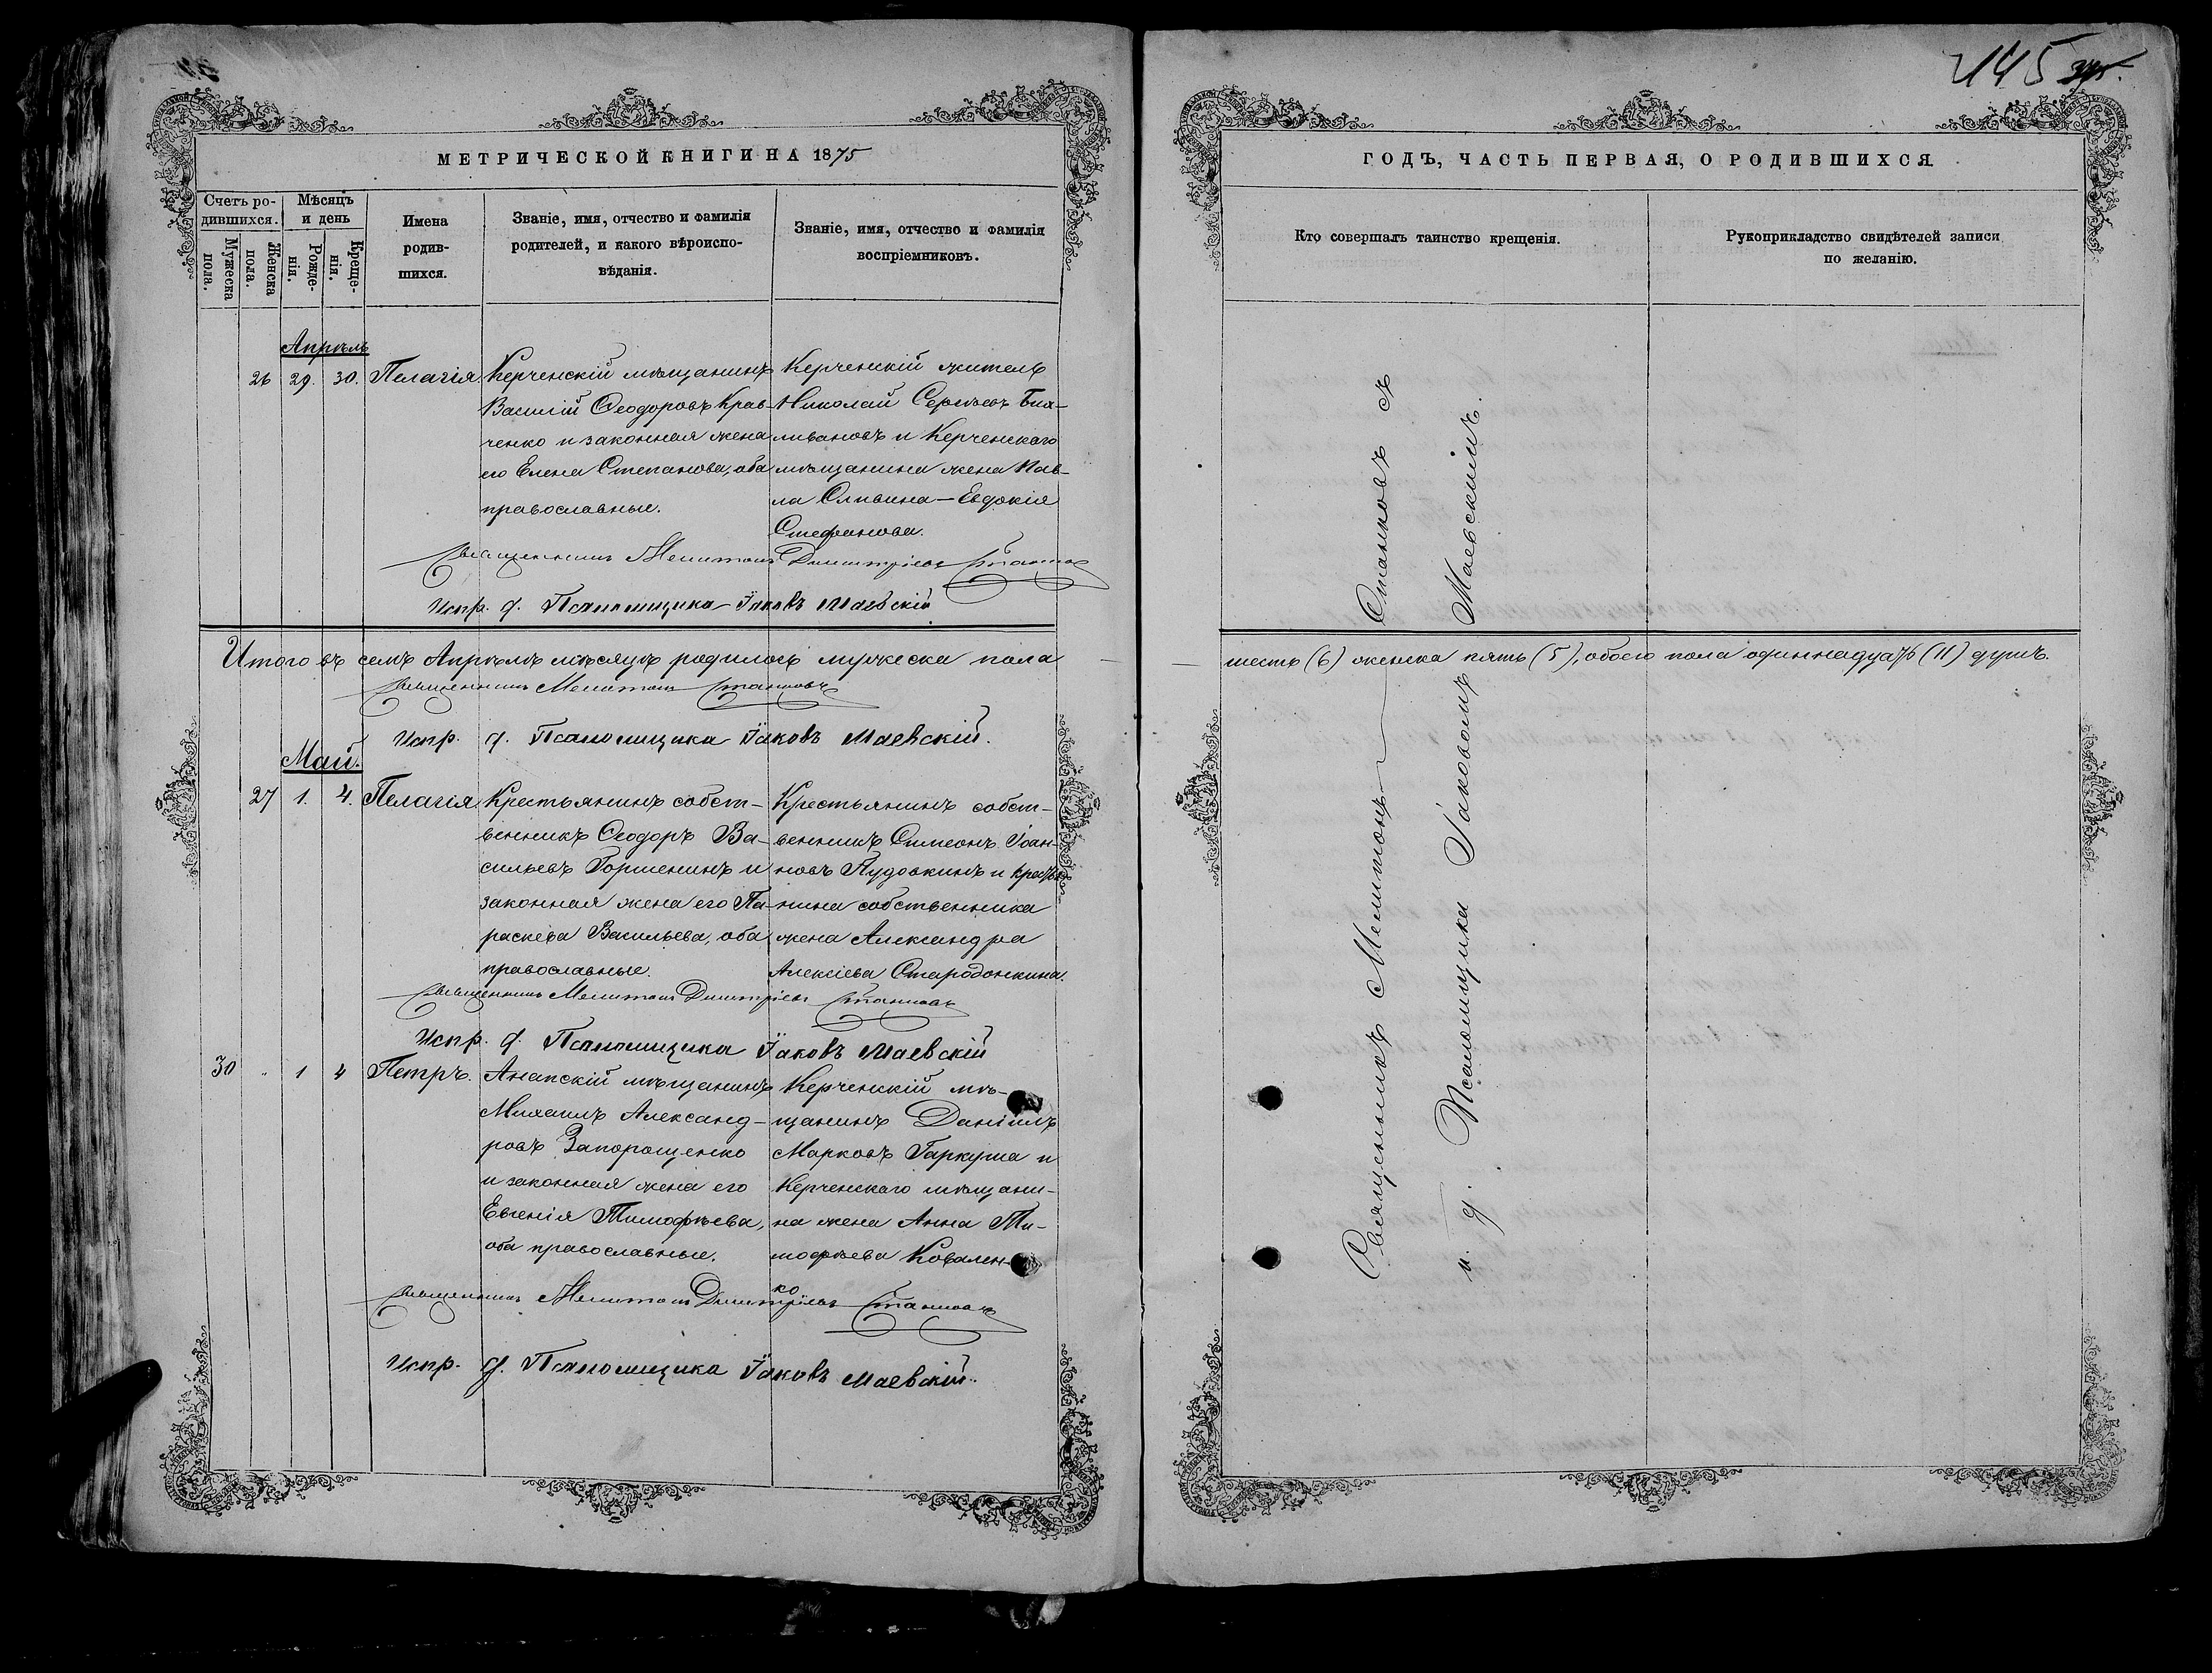 МЕТРИЧЕСКОЙ КНИГИ НА 1875
Счетъ родившихся.
Мужеска пола.
Женска пола.
Мѣсяцъ и день
Рожденія.
Крещенія.
Имена родившихся.
Званіе, имя, отчество и фамилія
родителей, и какого вѣроиспо-
вѣданія.
Званіе, имя, отчество и фамилія
воспріемниковъ.
Апрѣль
26 29. 30. Пелагія
Керченскій мѣщанинъ
Василій Ѳеодоровъ Крав-
ченко и законная жена
его Елена Степанова, оба
православные.
Керченскій житель
Николай Сергѣевъ
ливановъ и Керченскаго
мѣщанина жена Пав-
ла Сливина – Евдокія
Стефанова.
Священникъ Мелитонъ Димитріевъ Станковъ
Испр. д. Псаломщика Іаковъ Маевскій
Итого въ семъ Апрѣлѣ мѣсяцѣ родилось мужеска пола
Священникъ Мелитонъ Станковъ
Испр. д. Псаломщика Іаковъ Маевскій.
Май.
27 1. 4. Пелагія
Крестьянинъ собст-
венникъ Ѳеодоръ Ва-
сильевъ Горшенинъ и
законная жена его Па-
раскева Васильева, оба
православные.
Крестьянинъ собст-
венникъ Симеонъ Іоан-
новъ Пудовкинъ и крестья-
нина собственника
жена Александра
Алексіева Стародонкина.
Священникъ Мелитонъ Димитріевъ Станковъ
Испр. д. Псаломщика Іаковъ Маевскій
30 " 1 4 Петръ.
Анапскій мѣщанинъ
Михаилъ Александ-
ровъ Запорощенко
и законная жена его
Евгенія Тимофѣева,
оба православные.
Керченскій мѣ-
щанинъ Даніилъ
Марковъ Гаркуша и
Керченскаго мѣщани-
на жена Анна Ти-
мофѣева Ковален-
ко
Священникъ Мелитонъ Димитріевъ Станковъ
Испр. д. Псаломщика Іаковъ Маевскій.
445
ГОДЪ, ЧАСТЬ ПЕРВАЯ, О РОДИВШИХСЯ
Кто совершалъ таинство крещенія.
Рукоприкладство свидѣтелей записи
по желанію.
шесть (6) женска пять (5), обоего пола одиннадцать (11) душъ.
Священникъ Мелитонъ Станковъ съ
и. д. Псаломщика Іаковомъ Маевскимъ.